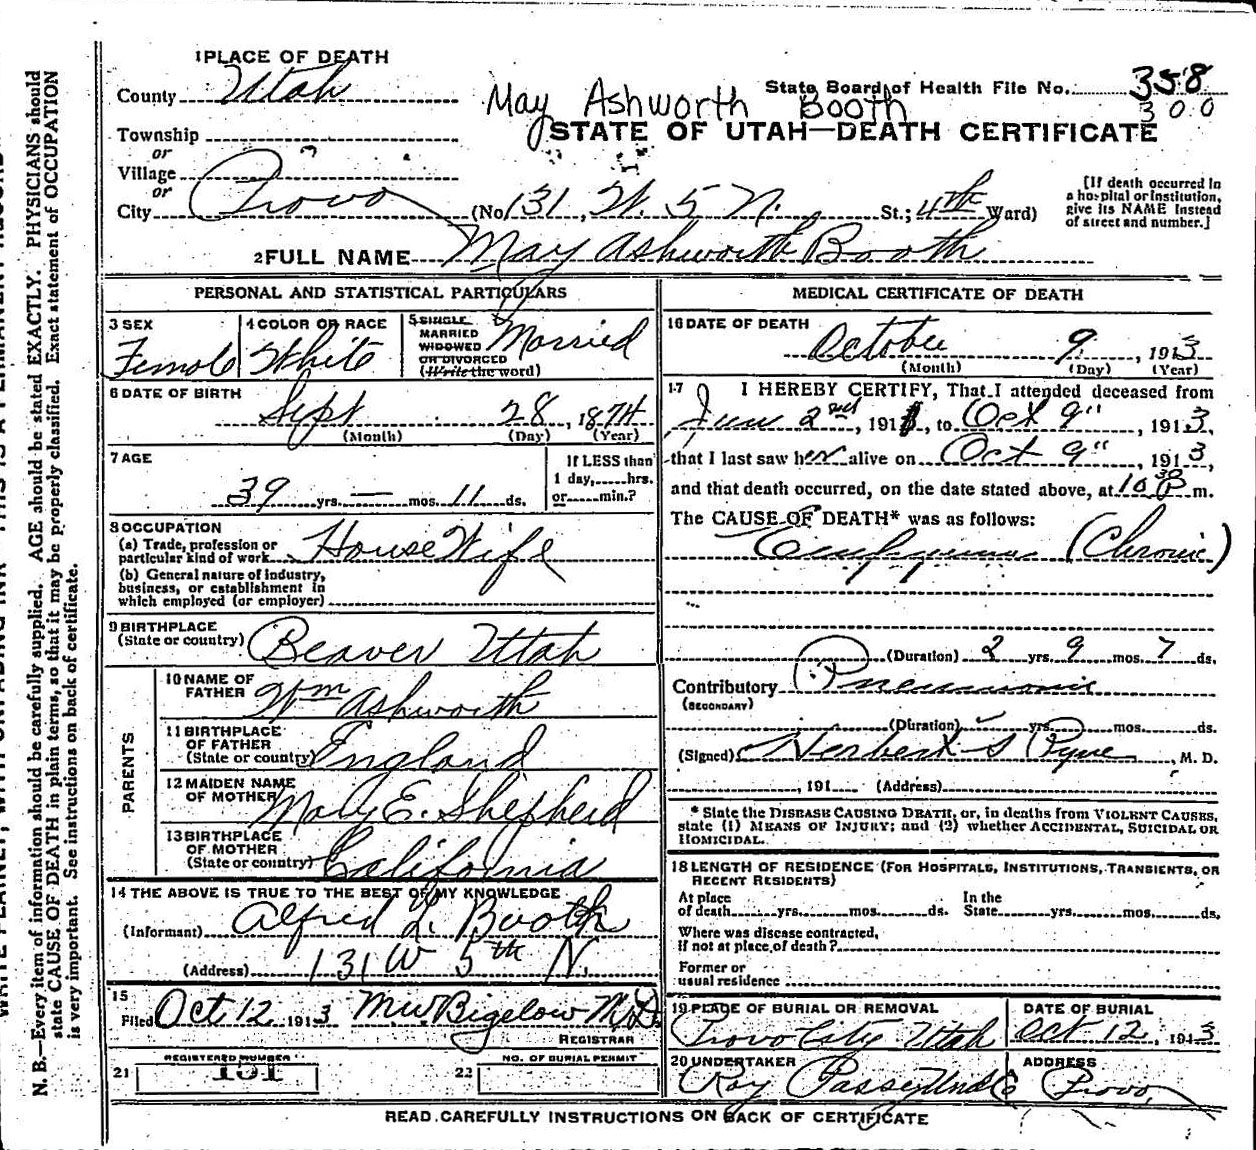 1 PLACE OF DEATH
County Utah
State Board of Health File No. 358
300
May Ashworth Booth
STATE OF UTAH—DEATH CERTIFICATE
Township
or
Village
or
City Provo (No 131, W. 5 N. St.; 4th Ward)
[If death occurred in a hospital or institution, give its NAME instead of street and number.]
2 FULL NAME May Ashworth Booth
PERSONAL AND STATISTICAL PARTICULARS
3 SEX
Female
4 COLOR OR RACE
White
5 SINGLE
MARRIED
WIDOWED
OR DIVORCED
(Write the word)
Married
6 DATE OF BIRTH
Sept 28, 1874
(Month) (Day) (Year)
7 AGE
39 yrs. — mos. 11 ds.
If LESS than
1 day, hrs.
or min.?
8 OCCUPATION
(a) Trade, profession or
particular kind of work House Wife
(b) General nature of industry,
business, or establishment in
which employed (or employer)
9 BIRTHPLACE
(State or country) Beaver Utah
PARENTS
10 NAME OF
FATHER Wm Ashworth
11 BIRTHPLACE
OF FATHER
(State or country) England
12 MAIDEN NAME
OF MOTHER Mary E. Shepherd
13 BIRTHPLACE
OF MOTHER
(State or country) California
14 THE ABOVE IS TRUE TO THE BEST OF MY KNOWLEDGE
(Informant) Alfred L. Booth
(Address) 131 W 5th N.
15
Filed Oct 12 1913 M W Bigelow M.D.
REGISTRAR
REGISTERED NUMBER
21 151
NO. OF BURIAL PERMIT
22
MEDICAL CERTIFICATE OF DEATH
16 DATE OF DEATH
October 9, 1913
(Month) (Day) (Year)
17 I HEREBY CERTIFY, That I attended deceased from
Jan 2nd, 1911, to Oct 9", 1913,
that I last saw her alive on Oct 9", 1913,
and that death occurred, on the date stated above, at 10 30 P m.
The CAUSE OF DEATH* was as follows:
Empyema (Chronic)
(Duration) 2 yrs. 9 mos. 7 ds.
Contributory Pneumonia
(SECONDARY)
(Duration) yrs. mos. ds.
(Signed) Herbert S Pyne, M. D.
, 191 (Address)
* State the DISEASE CAUSING DEATH, or, in deaths from VIOLENT CAUSES,
state (1) MEANS OF INJURY; and (2) whether ACCIDENTAL, SUICIDAL OR
HOMICIDAL.
18 LENGTH OF RESIDENCE (FOR HOSPITALS, INSTITUTIONS, TRANSIENTS, OR
RECENT RESIDENTS)
At place
of death yrs. mos. ds.
In the
State yrs. mos. ds.
Where was disease contracted,
if not at place of death?
Former or
usual residence
19 PLACE OF BURIAL OR REMOVAL
Provo City Utah
DATE OF BURIAL
Oct 12, 1913
20 UNDERTAKER
Ray Passey Und Co
ADDRESS
Provo
READ CAREFULLY INSTRUCTIONS ON BACK OF CERTIFICATE
N. B.—Every item of information should be carefully supplied. AGE should be stated EXACTLY. PHYSICIANS should
state CAUSE OF DEATH in plain terms, so that it may be properly classified. Exact statement of OCCUPATION
is very important. See instructions on back of certificate.